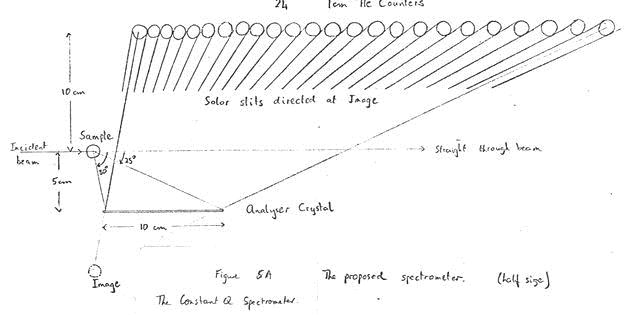 24 1cm He Counters
10 cm
Solar slits directed at Image
Sample
Incident beam
Straight through beam
25°
5cm
Analyser Crystal
10 cm
Image
Figure 5A The proposed spectrometer. (half size)
The Constant Q Spectrometer.